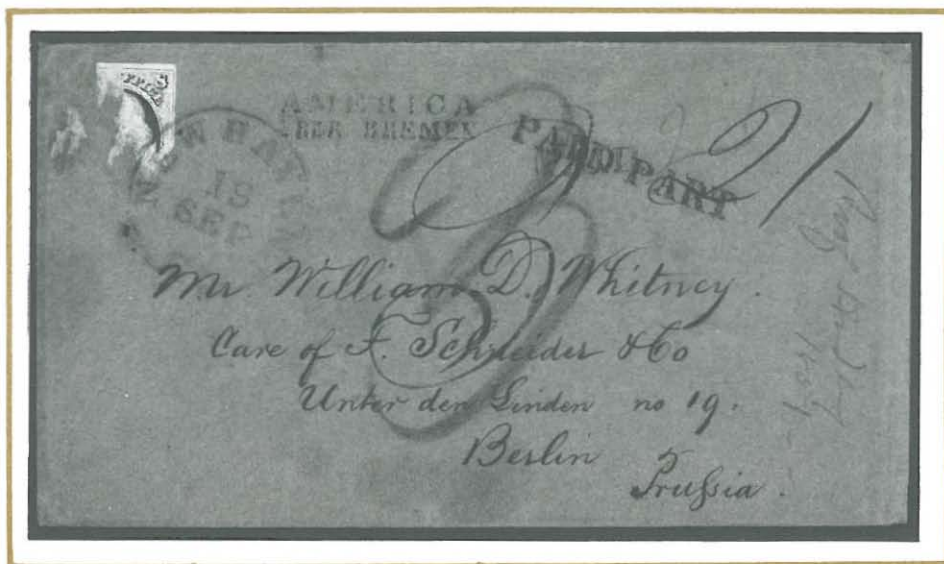 AMERICA
PER BREMEN
PAID PART
21
19
SEP
3
Mr. William. D. Whitney.
Care of F. Schneider & Co
Unter den Linden no 19.
Berlin
Prussia.